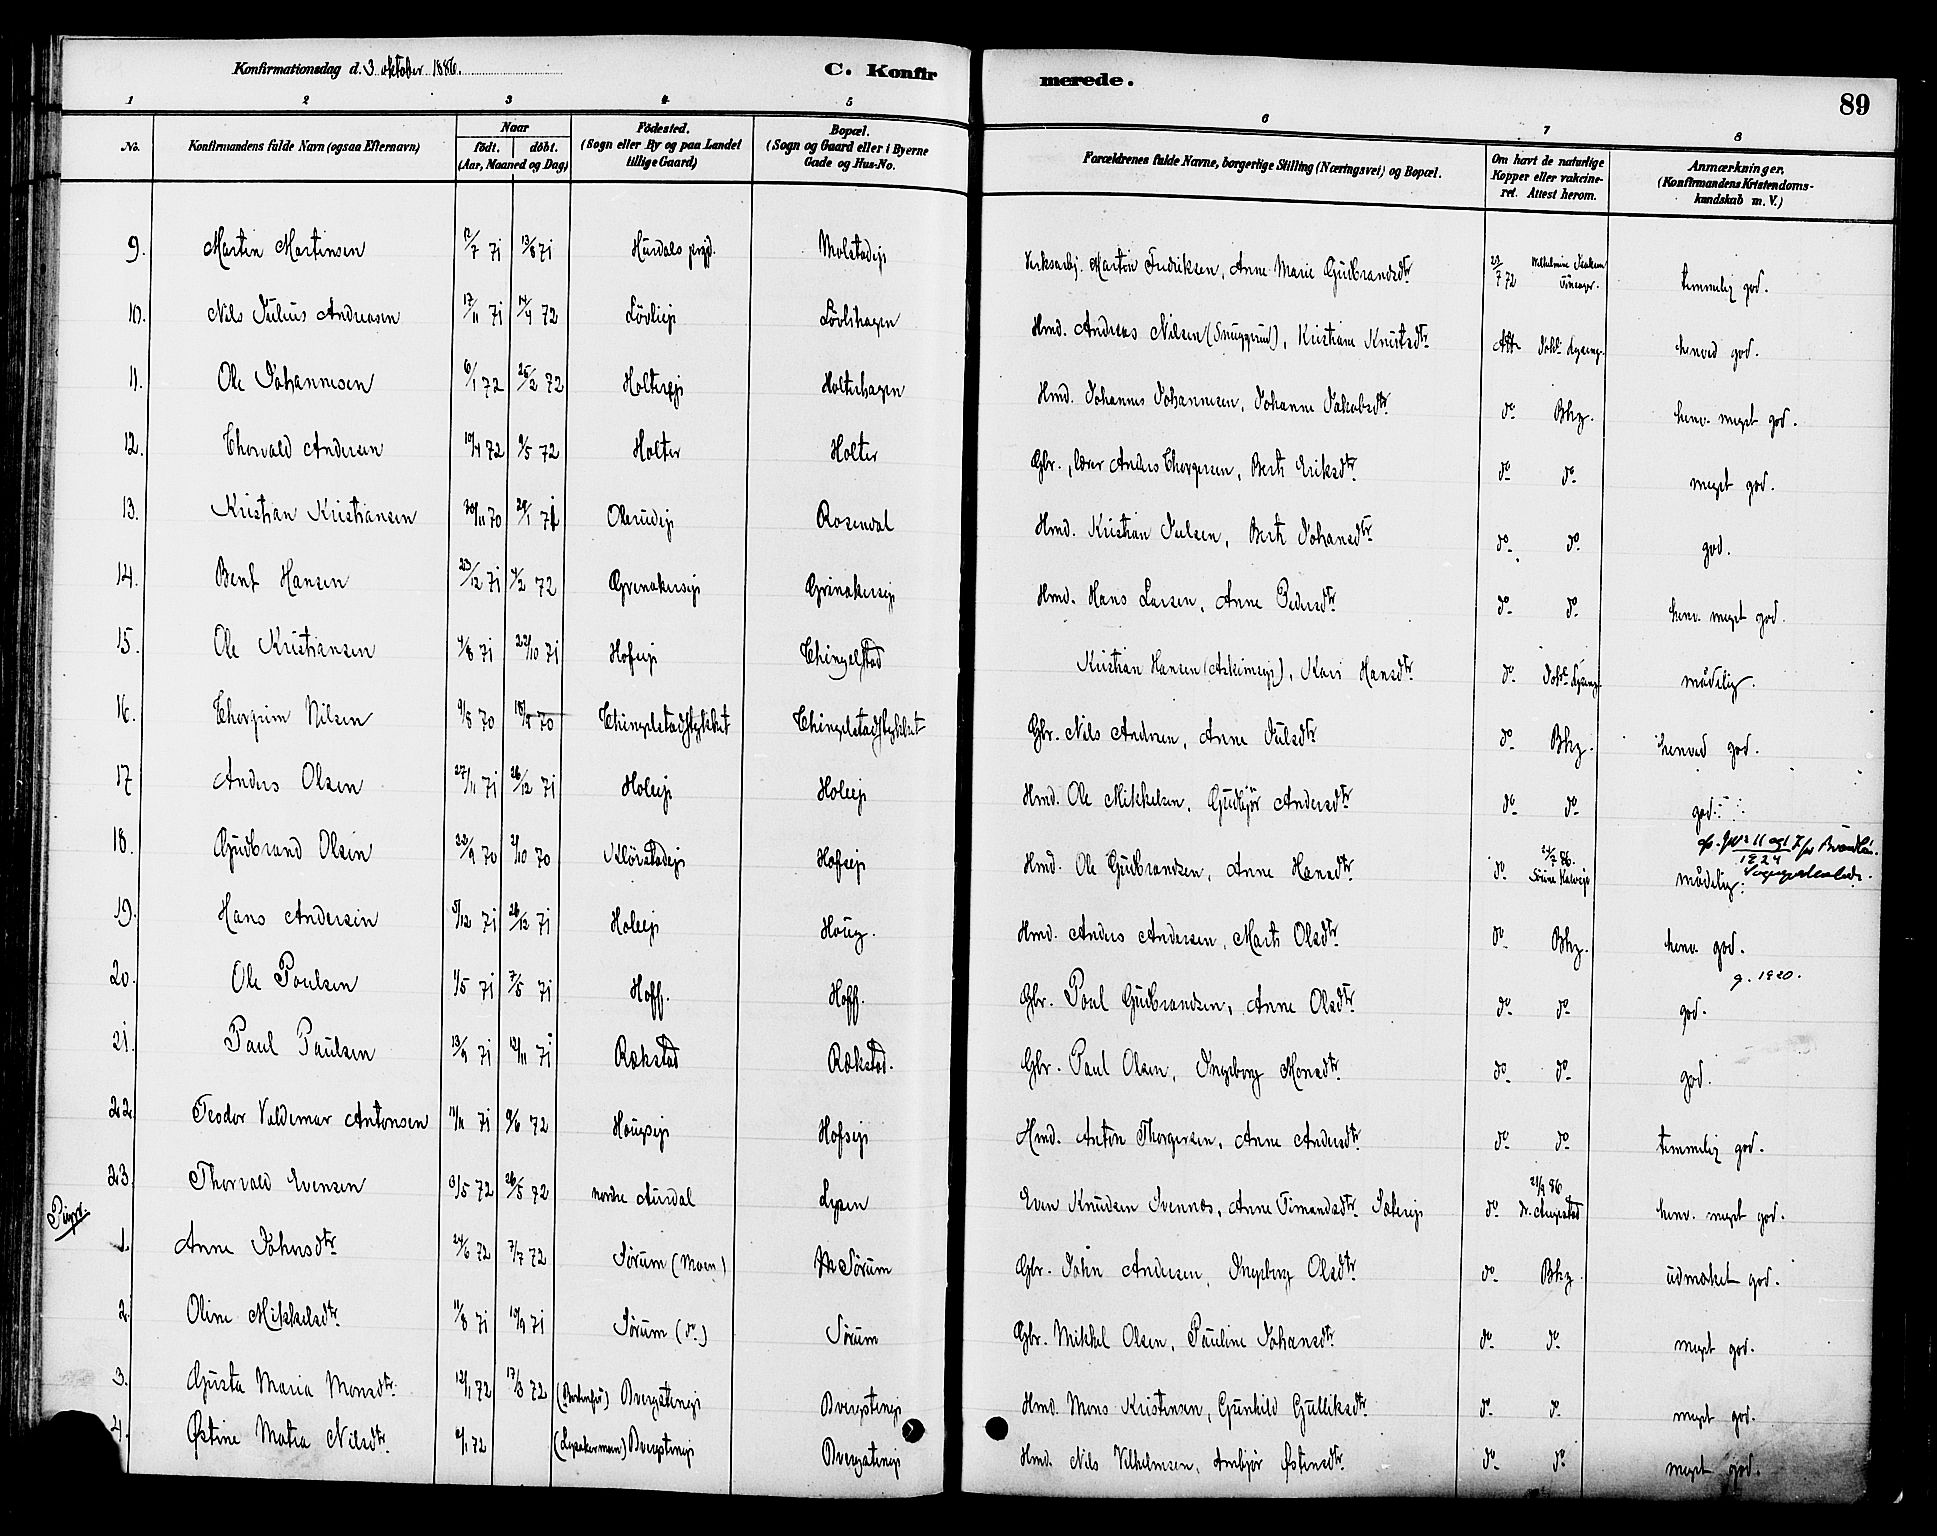 Konfirmationsdag d. 3 oktober 1886. C. Konfirmerede. 89
1 2 3 4 5 6 7 8
No. Konfirmandens fulde Navn (ogsaa Efternavn) Naar födt. döbt. (Aar, Maaned og Dag) Födested. (Sogn eller By og paa Landet tillige Gaard) Bopæl. (Sogn og Gaard eller i Byerne Gade og Hus-No. Forældrenes fulde Navne, borgerlige Stilling (Næringsvei) og Bopæl. Om havt de naturlige Kopper eller vakcineret. Attest herom. Anmærkninger. (Konfirmandens Kristendomskundskab m. V.)
9. Martin Martinsen 12/7 71 13/8 71 Hurdals prgd. Molstadejs Martin Fredriksen, Anne Marie Gudbrandsdtr 7 72 temmelig god.
10. Nils Julius Andreasen 17/11 71 14/4 72 Lövliejs Lövlihagen Hmd. Andreas Nilsen (Snuggrud), Kristiane Knutsdtr Att. henved god.
11. Ole Johannesen 6/1 72 25/2 72 Holterejs Holterhagen Hmd. Johannes Johannesen, Johanne Jakobsdtr do Bhg. henv. meget god.
12. Thorvald Andersen 10/4 72 9/5 72 Holter Holter Gbr., lærer Anders Thorgersen, Berth Eriksdtr do do meget god.
13. Kristian Kristiansen 30/11 70 29/1 71 Olerudejs Rosendal Hmd. Kristian Julsen, Berth Johansdtr do do god.
14. Bent Hansen 23/12 71 4/2 72 Grinakersejs Grinakersejs Hmd. Hans Larsen, Anne Pedersdtr do do henv. meget god.
15. Ole Kristiansen 4/8 71 22/10 71 Hofsejs Thingelstad Kristian Hansen (Askimsejs), Kari Hansdtr do mådelig.
16. Thorgrim Nilsen 9/8 70 70 Thingelstadstykket Thingelstadstykket Gbr. Nils Andrsen, Anne Julsdtr do Bhg. henved god.
17 Anders Olsen 27/11 71 26/12 71 Holeejs Holeejs Hmd. Ole Mikkelsen, Gudbjör Andersdtr do do god.
18. Gudbrand Olsen 22/9 70 2/10 70 Klörstadejs Hofsejs Hmd. Ole Gudbrandsen, Anne Hansdtr do 86. mådelig. 1924
19. Hans Andersen 5/12 71 26/12 71 Holeejs Houg. Hmd. Anders Andersen, Marth Olsdtr do Bhg. henv. god.
20. Ole Poulsen 1/5 71 7/5 71 Hoff. Hoff. Gbr. Poul Gudbrandsen, Anne Olsdtr do do god. g. 1920.
21. Paul Paulsen 13/9 71 12/11 71 Rækstad Rækstad. Gbr. Paul Olsen, Ingeborg Monsdtr do do god.
22. Teodor Valdemar Antonsen 11/11 71 9/6 72 Hougsejs Hofsejs Hmd. Anton Thorgersen, Anne Andersdtr do do temmelig god.
23. Thorvald Evensen 3/5 72 26/5 72 nordre Aurdal Lysen Even Knudsen Svennes, Anne Timandsdtr Sæterejs do 21/9 86 Dr. Augestad henv. meget god.
Piger.
1. Anne Johnsdtr 24/6 72 7/7 72 Sörum (Moen) Sörum Gbr. John Andersen, Ingeborg Olsdtr do Bhg. udmærket god.
2. Oline Mikkelsdtr 11/8 71 10/9 71 Sörum (do) Sörum Gbr. Mikkel Olsen, Pauline Johansdtr do do meget god.
3. Gusta Maria Monsdtr 12/1 72 17/3 72 Dvergstenejs Dvergstenejs Hmd. Mons Kristensen, Gunhild Gulliksdtr do do meget god.
4. Østine Matea Nilsdtr 6/1 72 (Lysakermoen) Dvergstenejs Dvergstenejs Hmd. Nils Vilhelmsen, Ambjör Østensdtr do do meget god.